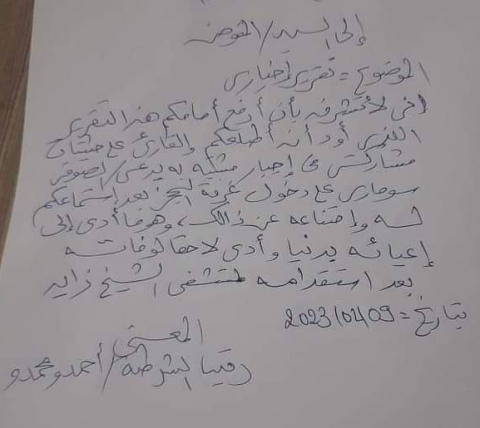 إلى السيد/ المفوض
الموضوع = تقرير إخباري
إني لأتشرف بأن أرفع أمامكم هذا التقرير
الذي أود أن أطلعكم والقارئ على حيثيات
مشاركتي في إجبار مشتبه به يدعى الصوفي
سومارى على دخول غرفة الحجز بعد استماعكم
له وامتناعه عن ذالك، وهو ما أدى إلى
إعيائه بدنيا وأدى لاحقا لوفاته
بعد استقدامه لمستشفى الشيخ زايد
بتاريخ = 2023/04/09
المعني
رقيب الشرطة/ أحمدو محمدو